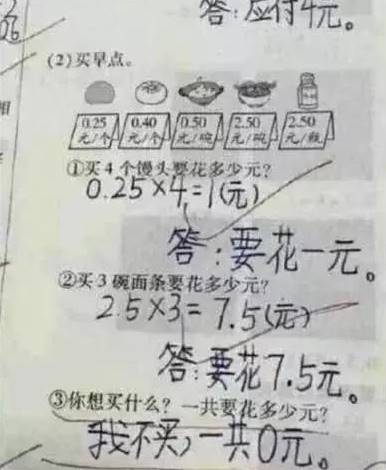 答:应付4元。
(2)买早点。
0.25元/个 0.40元/个 0.50元/碗 2.50元/碗 2.50元/瓶
①买4个馒头要花多少元?
0.25×4=1(元)
答:要花一元。
②买3碗面条要花多少元?
2.5×3=7.5(元)
答:要花7.5元。
③你想买什么?一共要花多少元?
我不买,一共0元。